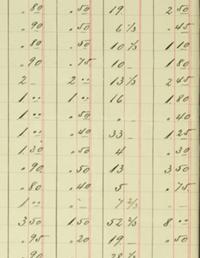 .80 .50 19 2 50
.90 .50 6 2/3 .45
.80 .50 10 1/2 1 10
.90 .75 10 - 1 80
2 - 2 .. 13 1/3 2 45
1 .. 1 .. 16 1 80
1 .. .50 . - .40
1 .. .40 33 - 1 25
1 30 .50 4 .30
.90 .50 13 3 50
.80 .40 5 .75
1 .. . - 7 2/3 . -
3 50 1 50 52 2/3 8 ..
.95 .20 19 - .50
.90